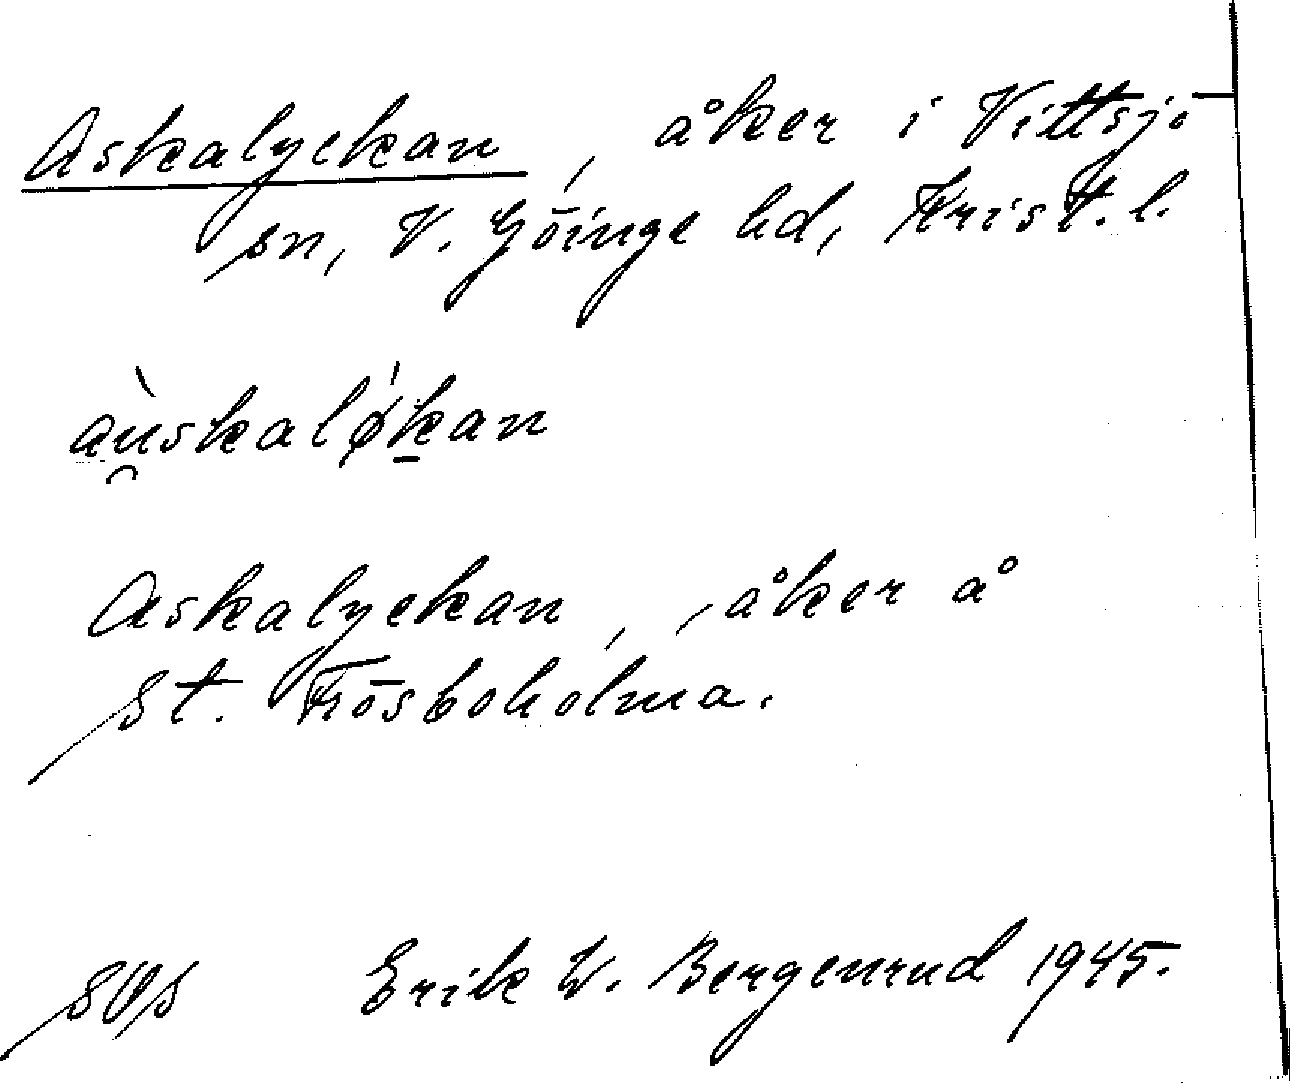 Askalyckan, åker i Vittsjö
sn, V. Göinge hd, Krist. l.
àu̯skalø̍k̠an
Askalyckan, åker å
St. Frösboholma.
SOS Erik W. Bergenrud 1945.